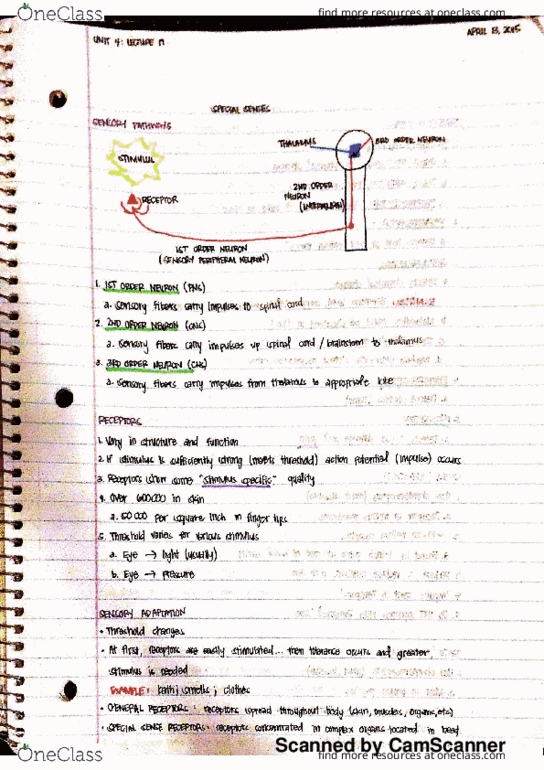 OneClass
find more resources at oneclass.com
APRIL 13, 2015
UNIT 4: LECTURE 17
SPECIAL SENSES
SENSORY PATHWAYS
STIMULUS
THALAMUS
3RD ORDER NEURON
RECEPTOR
2ND ORDER
NEURON
(INTERNEURON)
1ST ORDER NEURON
(SENSORY PERIPHERAL NEURON)
1. 1ST ORDER NEURON (PNS)
a. sensory fibers carry impulses to spinal cord
2. 2ND ORDER NEURON (CNS)
a. sensory fibers carry impulses up spinal cord / brainstem to thalamus
3. 3RD ORDER NEURON (CNS)
a. sensory fibers carry impulses from thalamus to appropriate lobe
RECEPTORS
1. Vary in structure and function
2. If stimulus is sufficiently strong (meets threshold) action potential (impulse) occurs
3. Receptors show some "stimulus specific" quality
4. Over 600000 in skin
a. per square inch in finger tips
5. Threshold varies for various stimulus
a. Eye → light (usually)
b. Eye → pressure
SENSORY ADAPTATION
• Threshold changes
• At first, receptors are easily stimulated... then tolerance occurs and greater
stimulus is needed
EXAMPLE: bath; smells; clothes
• GENERAL RECEPTORS: receptors spread throughout body (skin, muscles, organs, etc)
• SPECIAL SENSE RECEPTORS: receptors concentrated in complex organs located in head
Scanned by CamScanner
OneClass
find more resources at oneclass.com